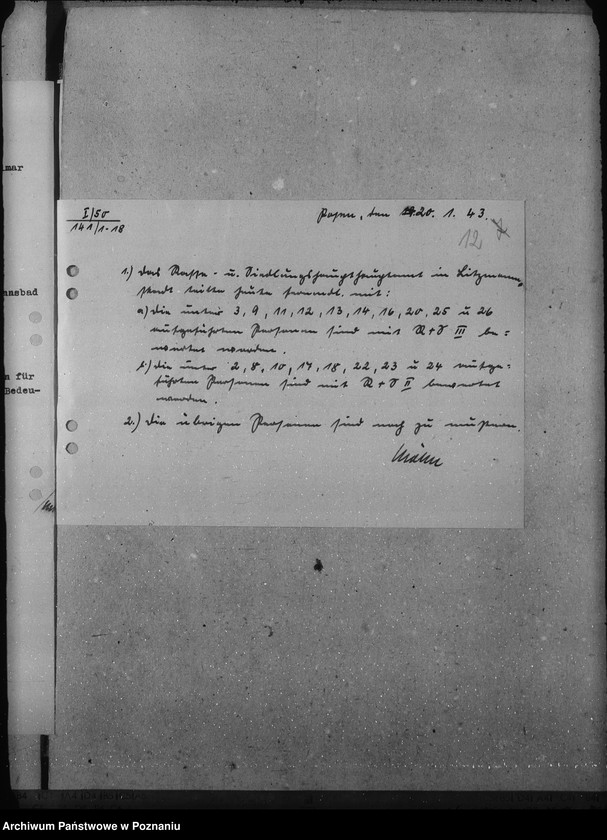 imar
nnsbad
n für
Bedeu-
I/50
141/1-18
Posen, den 20. 1. 43.
12
1.) Das Rasse- u. Siedlungshaupthauptamt in Litzmann-
stadt teilte heute fernmdl. mit:
a) die unter 3, 9, 11, 12, 13, 14, 16, 20, 25 u 26
aufgeführten Personen sind mit R+S III be=
wertet worden.
b.) die unter 2, 8, 10, 17, 18, 22, 23 u 24 aufge=
führten Personen sind mit R+S II bewertet
worden.
2.) Die übrigen Personen sind noch zu mustern.
Archiwum Państwowe w Poznaniu